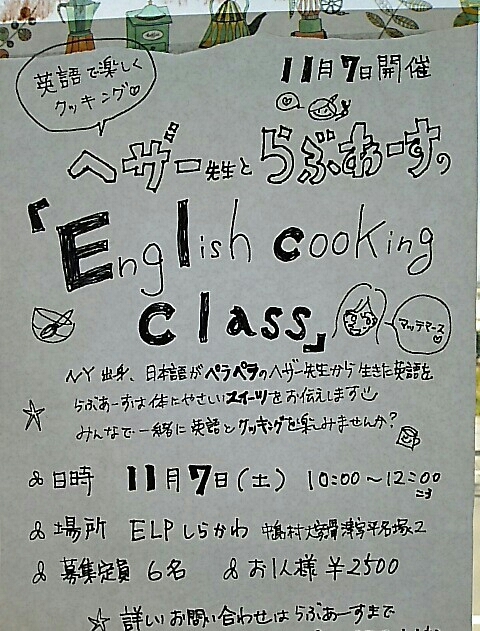 英語で楽しく
クッキング♡
11月7日開催
ヘザー先生とらぶあーすの
「English cooking
class」
マッテマース♡
NY出身、日本語がペラペラのヘザー先生から生きた英語を
らぶあーすは体にやさしいスイーツをお伝えします
みんなで一緒に英語とクッキングを楽しみませんか?
日時 11月7日(土) 10:00〜12:00
ごろ
場所 ELPしらかわ 中島村大字滑津字平名塚2
募集定員 6名 お1人様 ¥2500
☆ 詳しいお問い合わせは らぶあーすまで